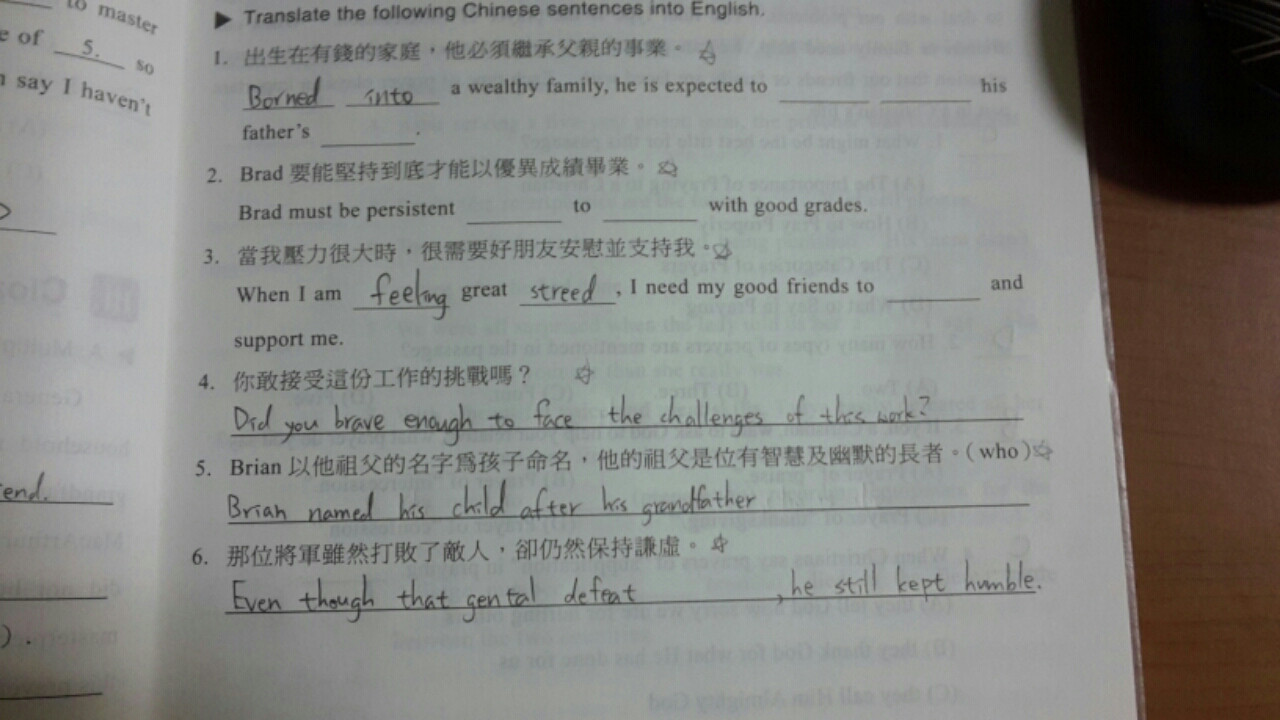 to master
e of 5. so
n say I haven't
▶ Translate the following Chinese sentences into English.
1. 出生在有錢的家庭，他必須繼承父親的事業。☆
Borned into a wealthy family, he is expected to ________ ________ his
father's ________.
2. Brad 要能堅持到底才能以優異成績畢業。☆
Brad must be persistent ________ to ________ with good grades.
3. 當我壓力很大時，很需要好朋友安慰並支持我。☆
When I am feeling great streed, I need my good friends to ________ and
support me.
4. 你敢接受這份工作的挑戰嗎？ ☆
Did you brave enough to face the challenges of this work?
5. Brian 以他祖父的名字為孩子命名，他的祖父是位有智慧及幽默的長者。(who)☆
Brian named his child after his grandfather,
iend.
6. 那位將軍雖然打敗了敵人，卻仍然保持謙虛。☆
Even though that gental defeat ________, he still kept humble.
).